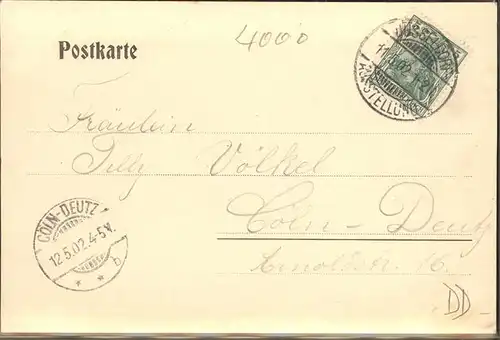 4000
Postkarte
DÜSSELDORF
11.5.02
AUSSTELLUNG
Fräulein
Tilly Völkel
Cöln - Deutz
Arnoldstr. 16.
CÖLN-DEUTZ
12.5.02.4-5N.
* * b
DD